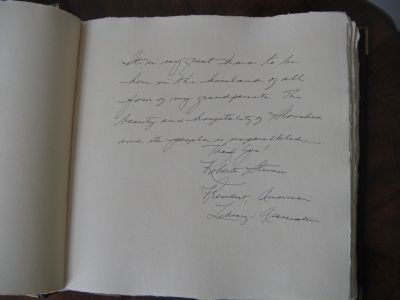 It is my great honor to be
here in the homeland of all
four of my grandparents. The
beauty and hospitality of Slovakia
and its people is unparalleled.
Thank you!
Roberta Stevens
President, American
Library Association